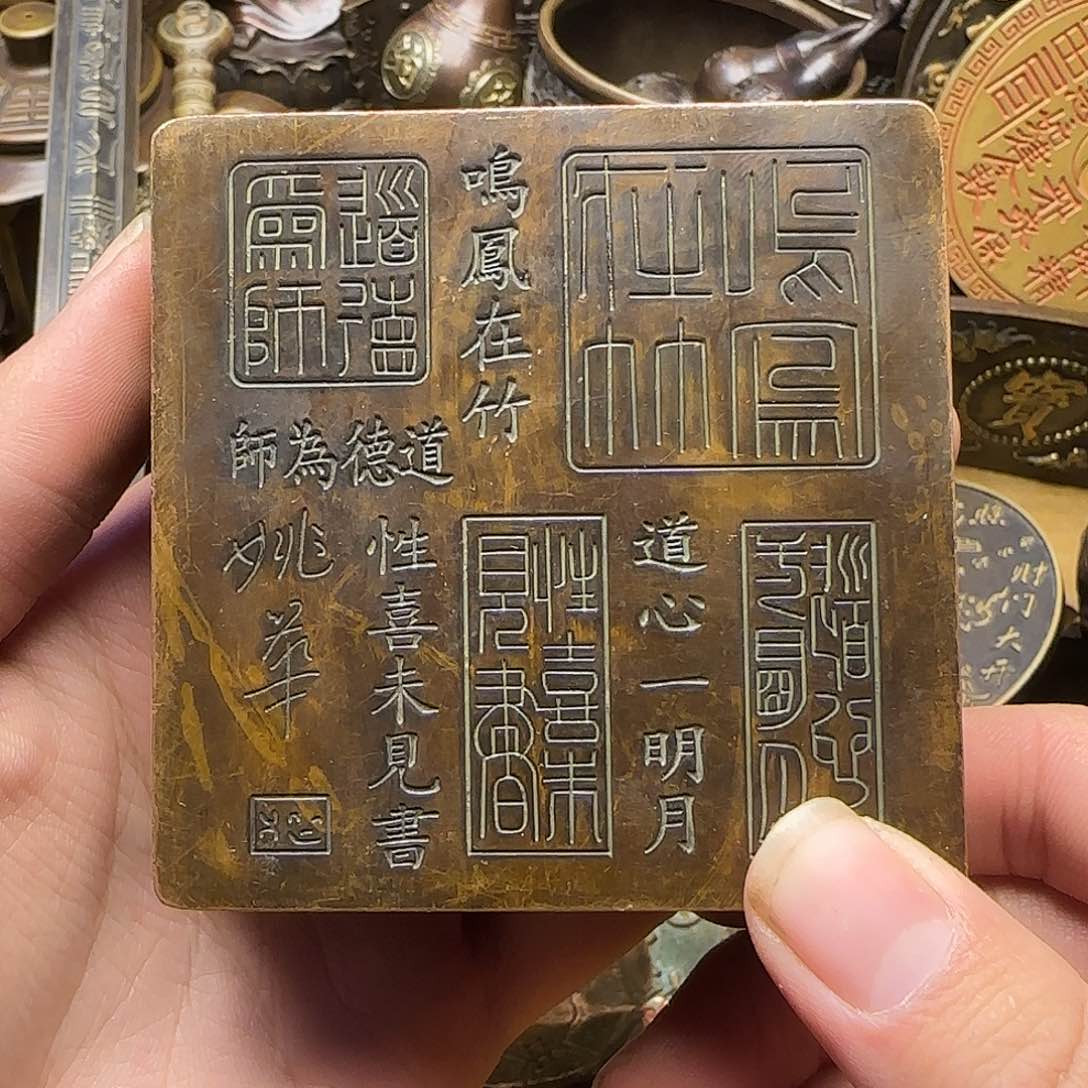 鳴鳳在竹
鳴鳳在竹
道德為師
道德為師
道心一明月
道心一明月
性喜未見書
性喜未見書
姚華